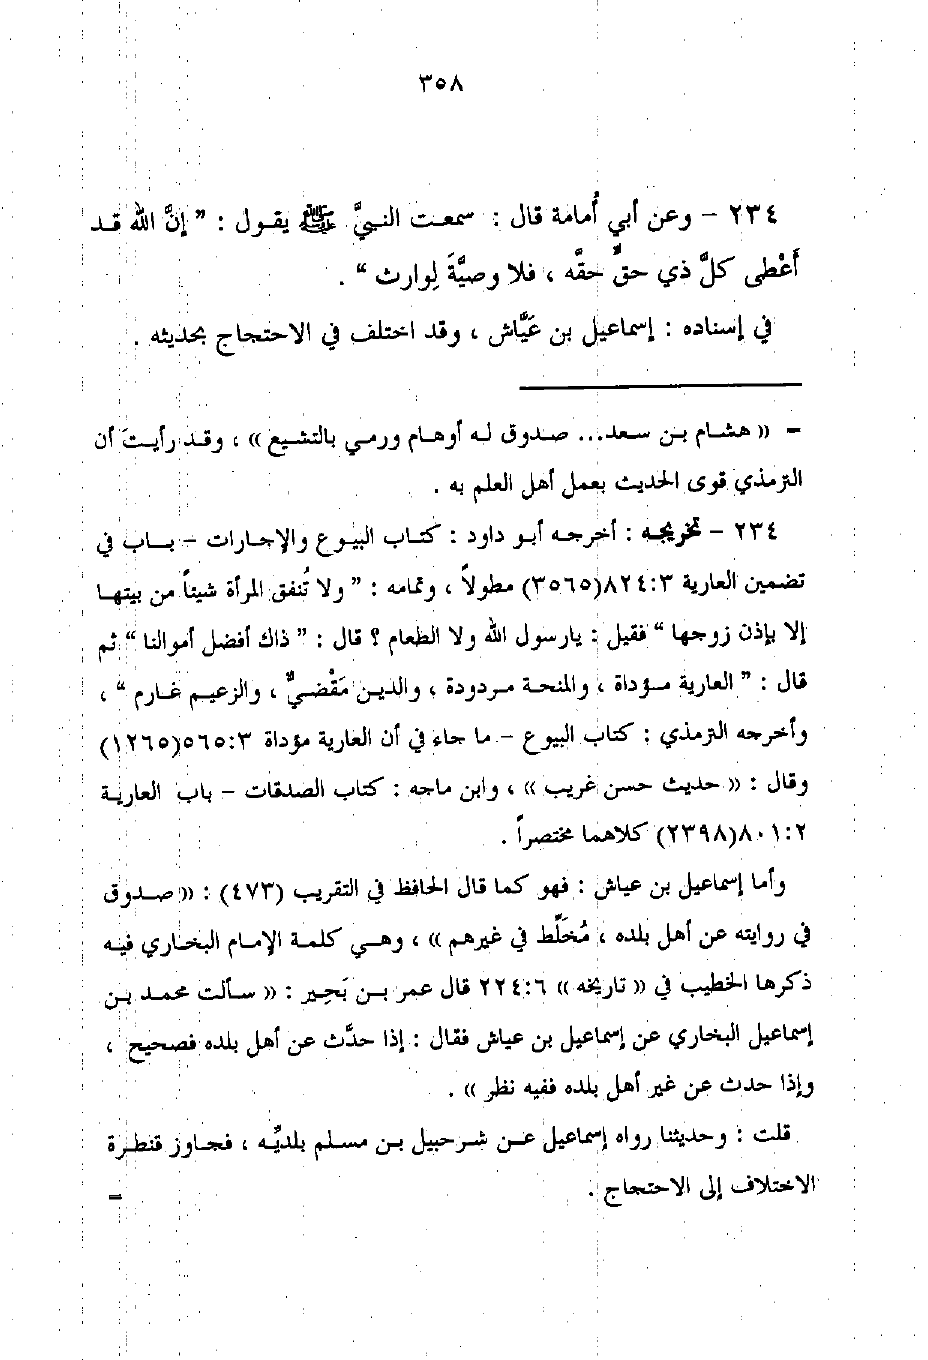 ٣٥٨
٢٣٤ - وعن أبي أُمامة قال : سمعت النبيَّ ﷺ يقول : " إنَّ الله قد
أَعْطى كلَّ ذي حقٍّ حقَّه ، فلا وصيَّةَ لِوارث " .
في إسناده : إسماعيل بن عَيَّاش ، وقد اختلف في الاحتجاج بحديثه .
= « هشام بن سعد... صدوق له أوهام ورمي بالتشيع » ، وقد رأيتَ أن
الترمذي قوى الحديث بعمل أهل العلم به .
٢٣٤ - تخريجه : أخرجه أبو داود : كتاب البيوع والإجارات - باب في
تضمين العارية ٨٢٤:٣(٣٥٦٥) مطولاً ، وتمامه : " ولا تُنفق المرأة شيئاً من بيتها
إلا بإذن زوجها " فقيل : يارسول الله ولا الطعام ؟ قال : " ذاك أفضل أموالنا " ثم
قال : " العارية مؤداة ، والمنحة مردودة ، والدين مَقْضيٌّ ، والزعيم غارم " ،
وأخرجه الترمذي : كتاب البيوع - ما جاء في أن العارية مؤداة ٥٦٥:٣(١٢٦٥)
وقال : « حديث حسن غريب » ، وابن ماجه : كتاب الصدقات - باب العارية
٨٠١:٢(٢٣٩٨) كلاهما مختصراً .
وأما إسماعيل بن عياش : فهو كما قال الحافظ في التقريب (٤٧٣) : « صدوق
في روايته عن أهل بلده ، مُخَلِّط في غيرهم » ، وهي كلمة الإمام البخاري فيه
ذكرها الخطيب في « تاريخه » ٢٢٤:٦ قال عمر بن بَجير : « سألت محمد بن
إسماعيل البخاري عن إسماعيل بن عياش فقال : إذا حدَّث عن أهل بلده فصحيح ،
وإذا حدث عن غير أهل بلده ففيه نظر » .
قلت : وحديثنا رواه إسماعيل عن شرحبيل بن مسلم بلديِّه ، فجاوز قنطرة
الاختلاف إلى الاحتجاج . =